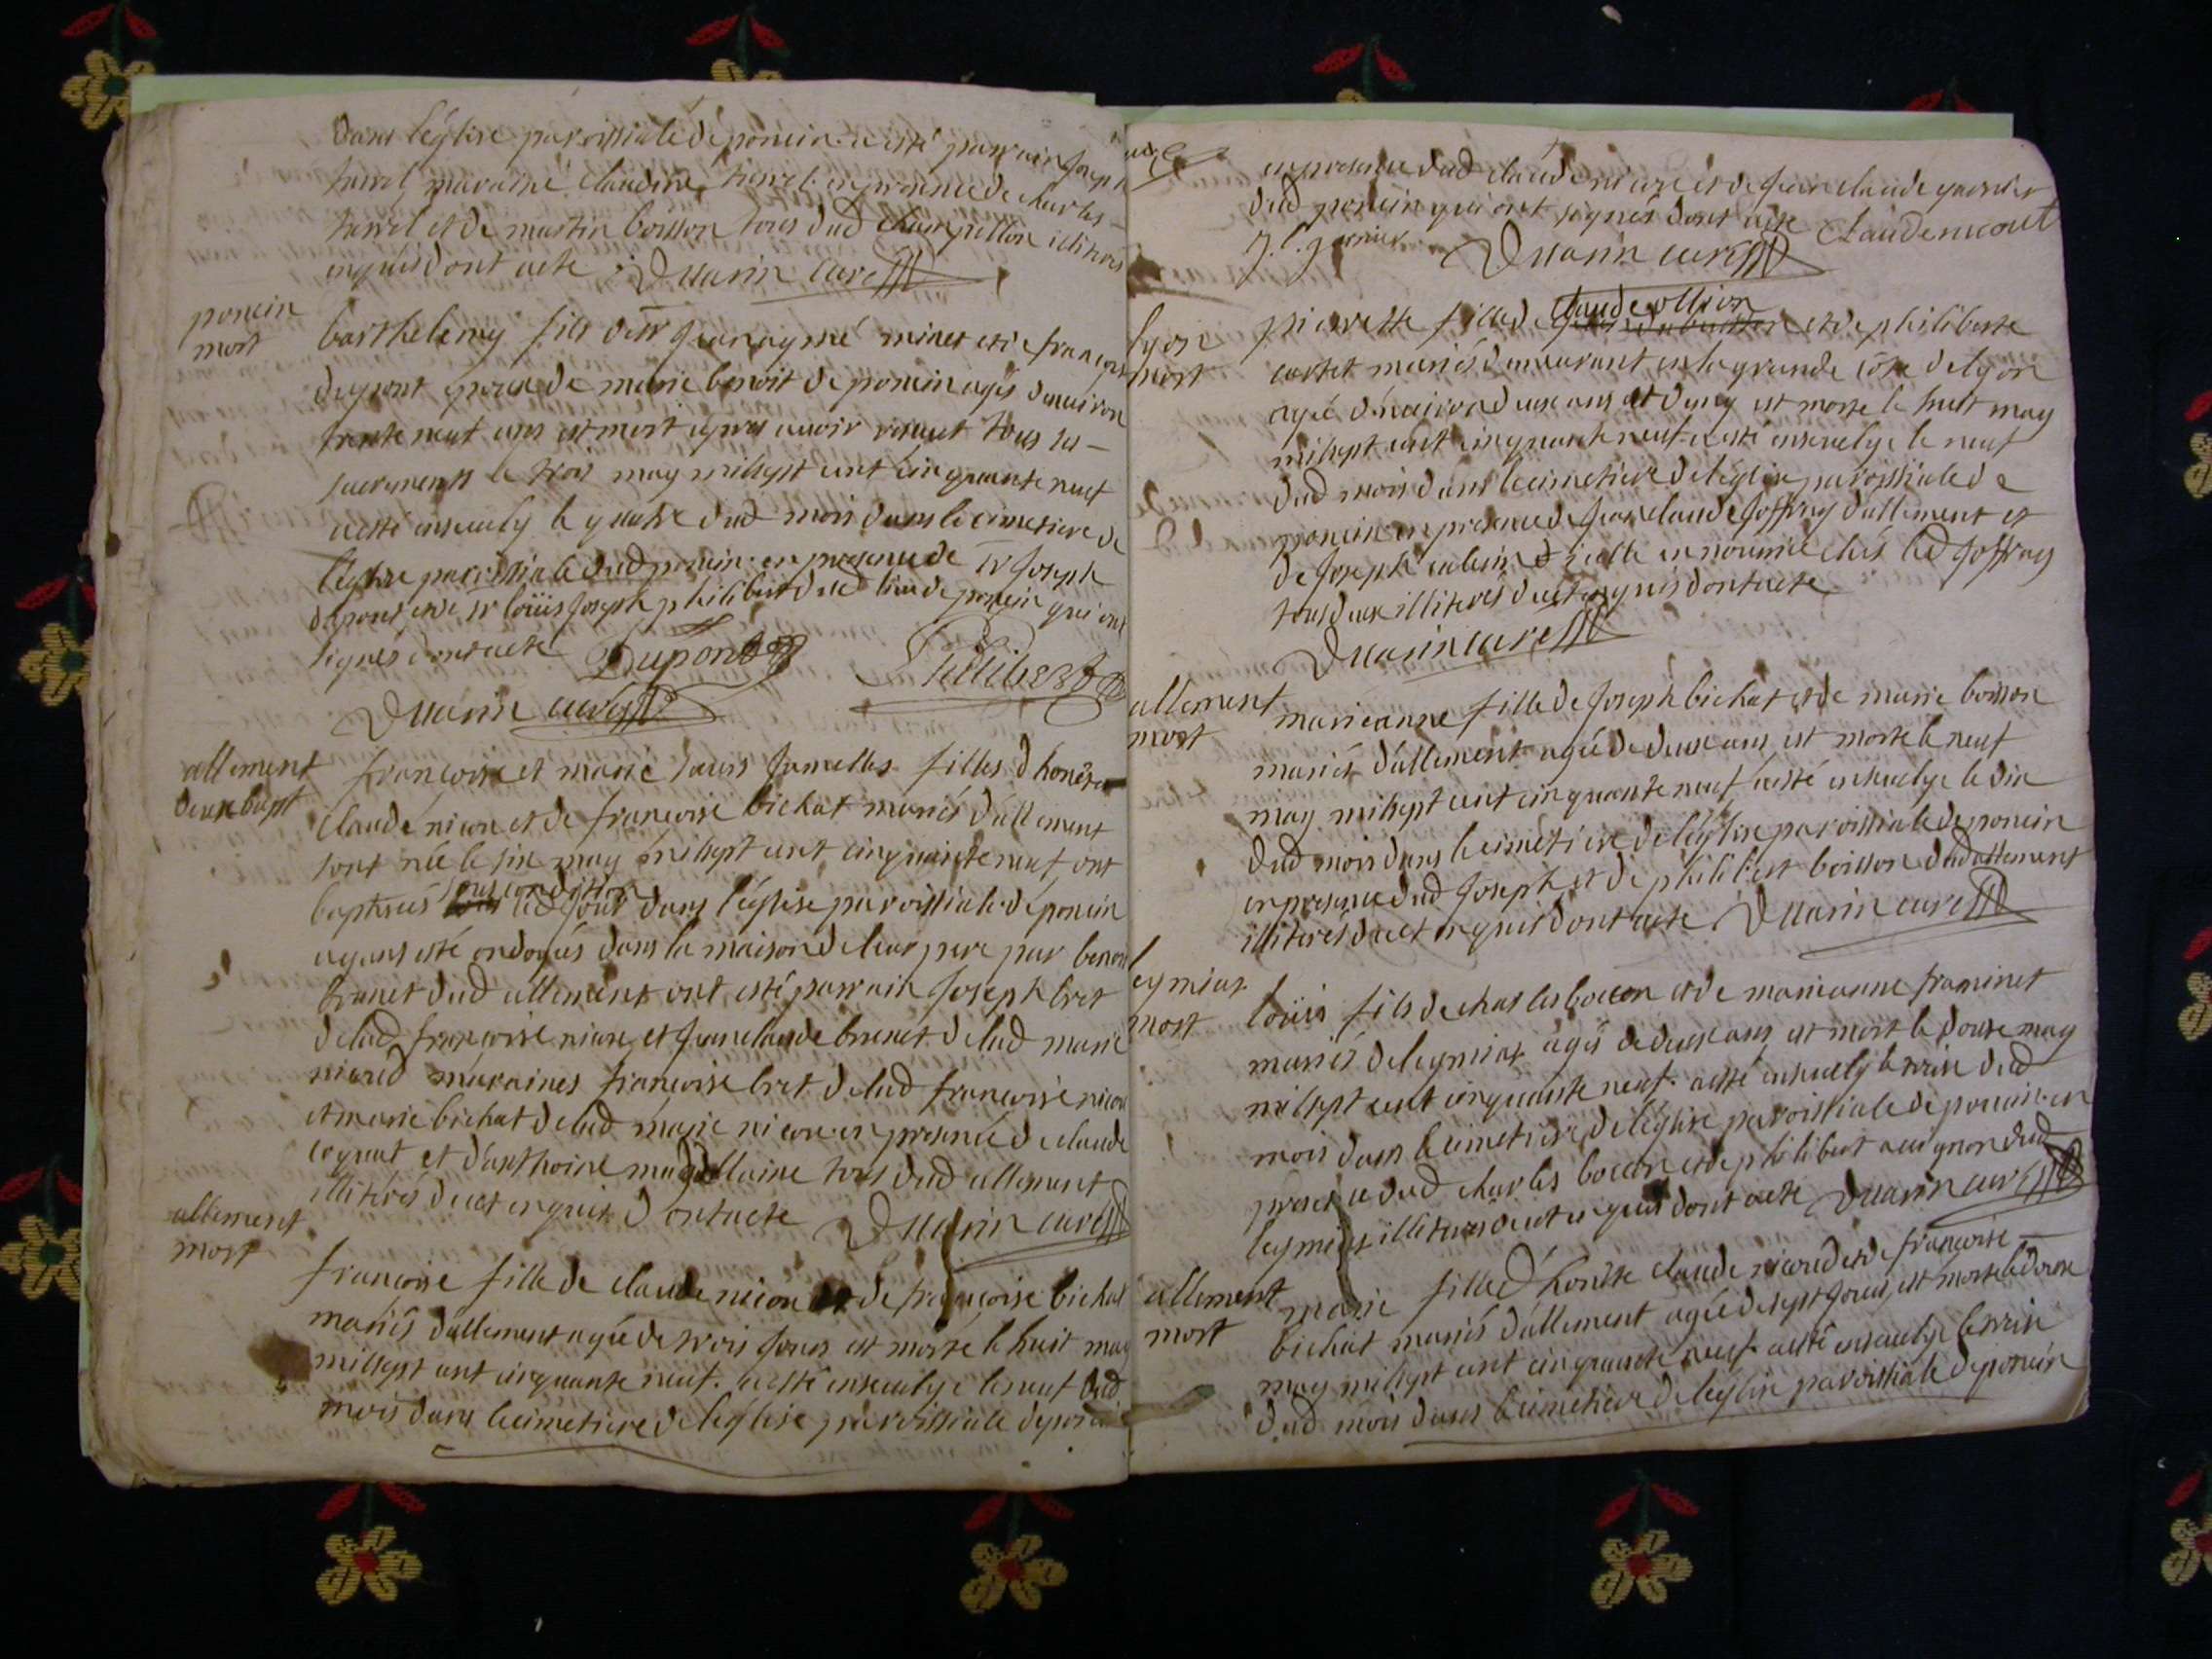 dans l'église paroissiale de poncin. a esté parrain Joseph
maraine claudine en presence de charles
et de martin boisson tous dud champollon illiterés
enquis dont acte Duarin curé
poncin
mort
barthelemy fils de sr Jean aymé minet et de françoise
dupont époux de marie benoit de poncin agés denuiron
trente neuf ans est mort apres auoir receut tous les
sacrements le trois may milsept cent cinquante neuf
aesté enseuely le quatre dud mois dans le cimetiere de
l'eglise paroissiale dud poncin. en presence de sr Joseph
dupont et de sr loüis Joseph philibert dud lieu de poncin qui ont
signés dont acte Dupont Phillibert
Duarin curé
allement
deux bapt
françoise et marie sœurs Jumelles filles d honéste
claude nicou et de françoise bichat mariés d'allement
sont née le six may milsept cent cinquante neuf, ont
sous condition
baptisées led jour dans l'église paroissiale de poncin
ayans esté ondoyés dans la maison de leur pere par benoit
brunet dud allement ont esté parrain Joseph bret
de lad françoise nicou, et Jean claude brunet de lad marie
nicoud maraines françoise bret de lad françoise nicou
et marie bichat de lad marie nicou en presence de claude
cognat et d'anthoine tous dud allement
illiterés de ce enquis dont acte Duarin curé
allement
mort
francoise fille de claude nicou et de françoise bichat
mariés d'allement agée de trois jours est morte le huit may
milsept cent cinquante neuf. aesté enseuelye le neuf dud
mois dans le cimetiere de l'eglise paroissiale de poncin
en presence dud claude nicou et de Jean claude garnier
dud poncin qui ont signés dont acte Claude nicout
J. C. garnier Duarin curé
lyon
mort
claude ollion
pierrette fille de et de philiberte
mariés demeurant en la grande côte de lyon
agée denuiron deux ans et demy est morte le huit may
milsept cent cinquante neuf aesté enseuelye le neuf
dud mois dans le cimetiere de l'eglise paroissiale de
poncin en presence de Jean claude Joffray d'allement et
de Joseph icelle en nourrice ches led Joffray
tous deux illiterés de ce enquis dont acte
Duarin curé
allement
mort
marieanne fille de Joseph bichat et de marie boisson
mariés d'allement agée de deux ans est morte le neuf
may milsept cent cinquante neuf aesté enseuelye le dix
dud mois dans le cimetiere de l'église paroissiale de poncin
en presence dud Joseph et de philibert boisson dud allement
illiterés de ce enquis dont acte Duarin curé
leymiat
mort
loüis fils de charles bocon et de marieanne framinet
mariés de leymiat agés de deux ans est mort le douze may
milsept cent cinquante neuf. aesté enseuely le treize dud
mois dans le cimetiere de l'église paroissiale de poncin. en
presence dud charles bocon et de philibert auignon dud
leymiat illiterés de ce enquis dont acte Duarin curé
allement
mort
marie fille d'honéste claude nicoud et de françoise
bichat mariés d'allement agée de sept jours, est morte le douze
may milsept cent cinquante neuf. aesté enseuelye le treize
dud mois dans le cimetiere de l'eglise paroissiale de poncin